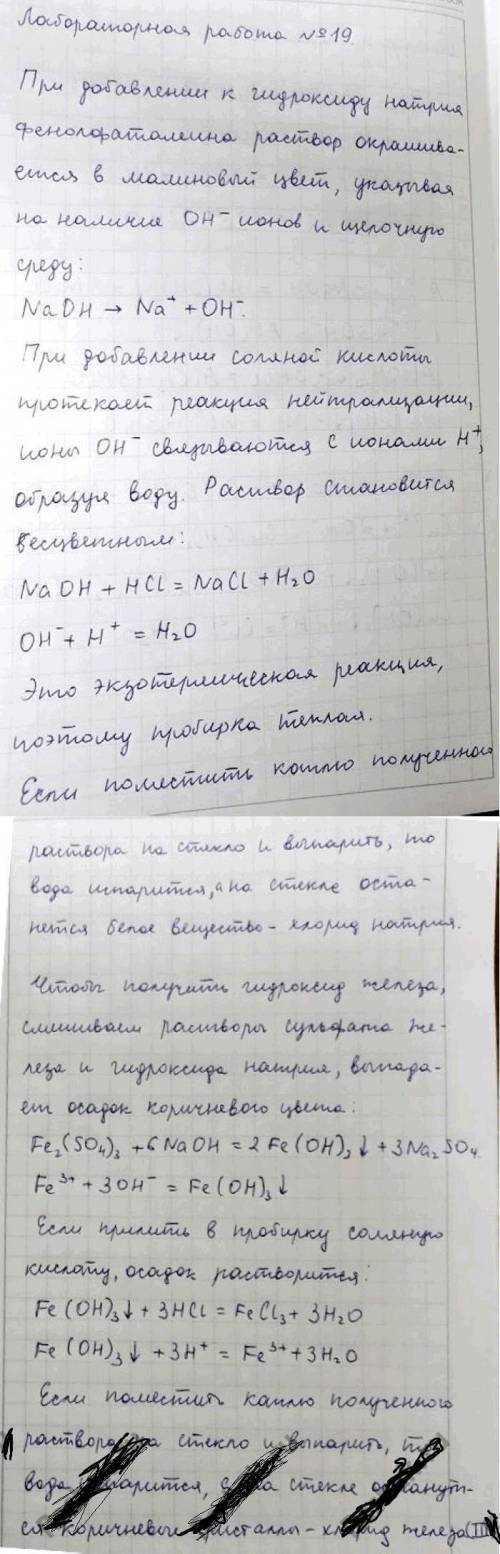 Лабораторная работа №19.
При добавлении к гидроксиду натрия
фенолфталеина раствор окрашива-
ется в малиновый цвет, указывая
на наличие OH⁻ ионов и щелочную
среду:
NaOH → Na⁺ + OH⁻.
При добавлении соляной кислоты
протекает реакция нейтрализации,
ионы OH⁻ связываются с ионами H⁺,
образуя воду. Раствор становится
бесцветным:
NaOH + HCl = NaCl + H₂O
OH⁻ + H⁺ = H₂O
Это экзотермическая реакция,
поэтому пробирка теплая.
Если поместить каплю полученного
раствора на стекло и выпарить, то
вода испарится, а на стекле оста-
нется белое вещество - хлорид натрия.
Чтобы получить гидроксид железа,
смешиваем растворы сульфата же-
леза и гидроксида натрия, выпада-
ет осадок коричневого цвета:
Fe₂(SO₄)₃ + 6NaOH = 2Fe(OH)₃↓ + 3Na₂SO₄
Fe³⁺ + 3OH⁻ = Fe(OH)₃↓
Если прилить в пробирку соляную
кислоту, осадок растворится:
Fe(OH)₃↓ + 3HCl = FeCl₃ + 3H₂O
Fe(OH)₃↓ + 3H⁺ = Fe³⁺ + 3H₂O
Если поместить каплю полученного
раствора на стекло и выпарить, то
вода испарится, на стекле
ся коричневые кристаллы - хлорид железа (III)